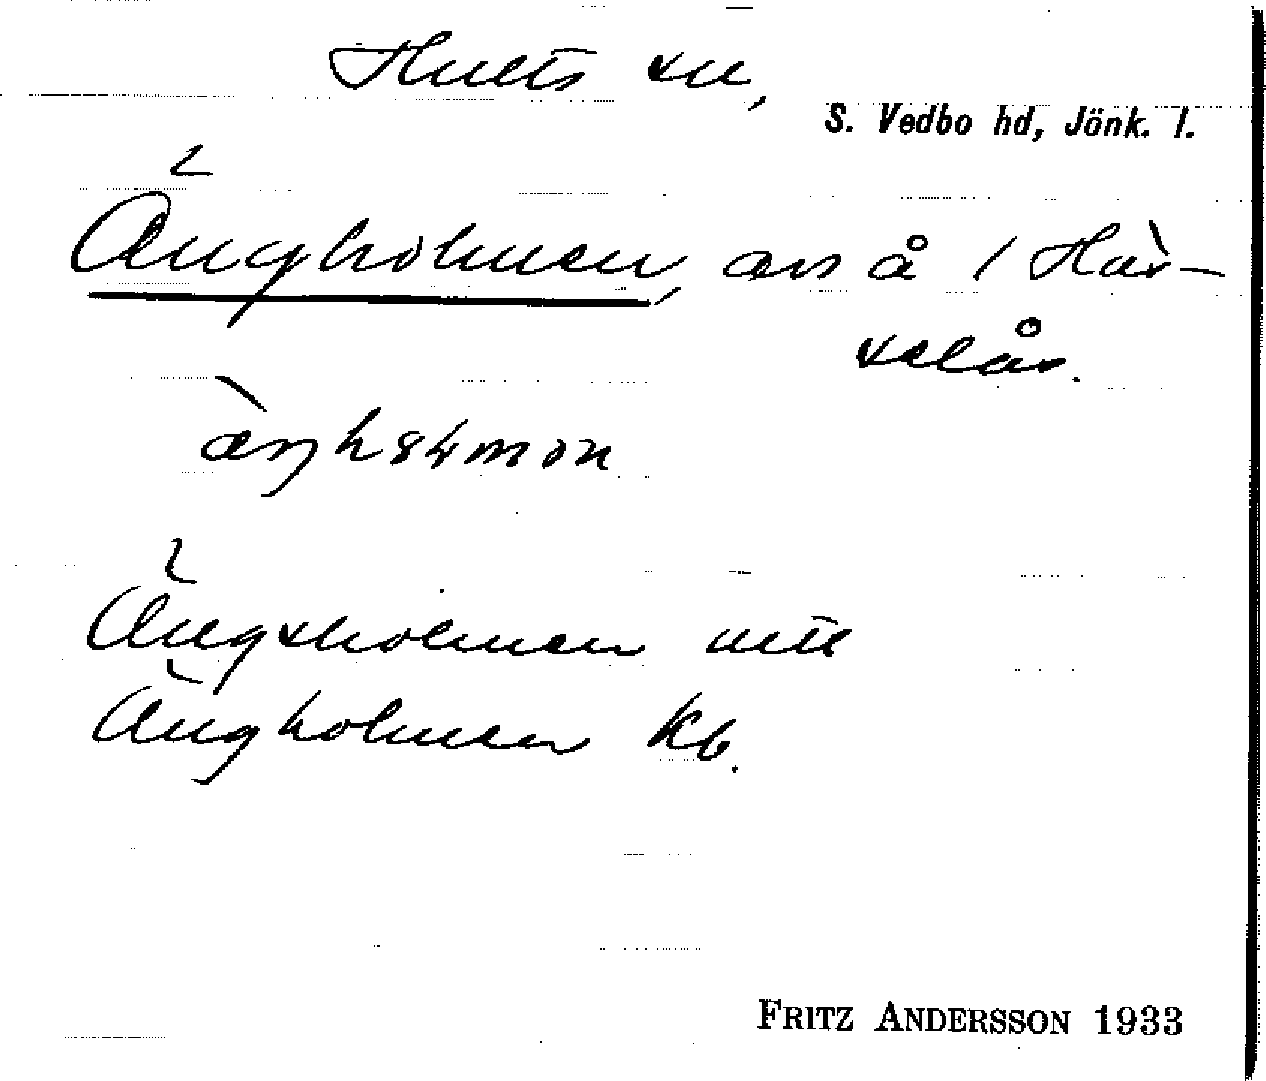 Hults sn,
S. Vedbo hd, Jönk. l.
Ängholmen, ers å 1 Här-
selås.
Ängsholmen
Ängholmen Kb.
FRITZ ANDERSSON 1933